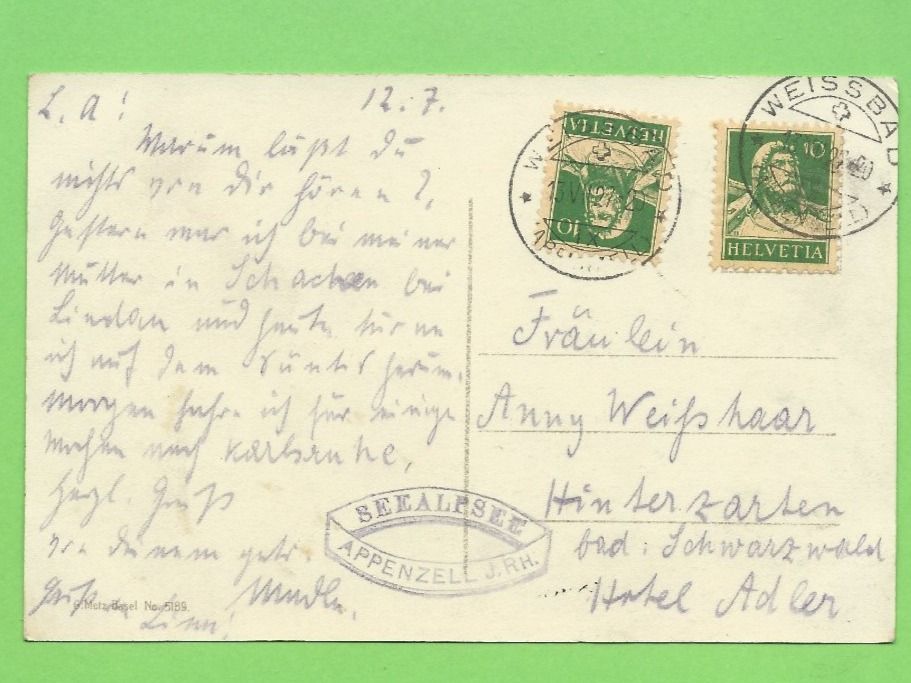 L. A! 12.7.
Warum läßt du
nichts von dir hören?
Gestern war ich bei meiner
Mutter in Schachen bei
Lindau und heute turne
ich auf dem Säntis herum.
Morgen fahre ich für einige
Wochen nach Karlsruhe.
Herzl. Gruß
von deinem
Gruß
G. Metz, Basel No. 5189.
SEEALPSEE
APPENZELL J. RH.
HELVETIA
10
WEISSBAD
10
HELVETIA
Fräulein
Anny Weißhaar
Hinterzarten
bad. Schwarzwald
Hotel Adler